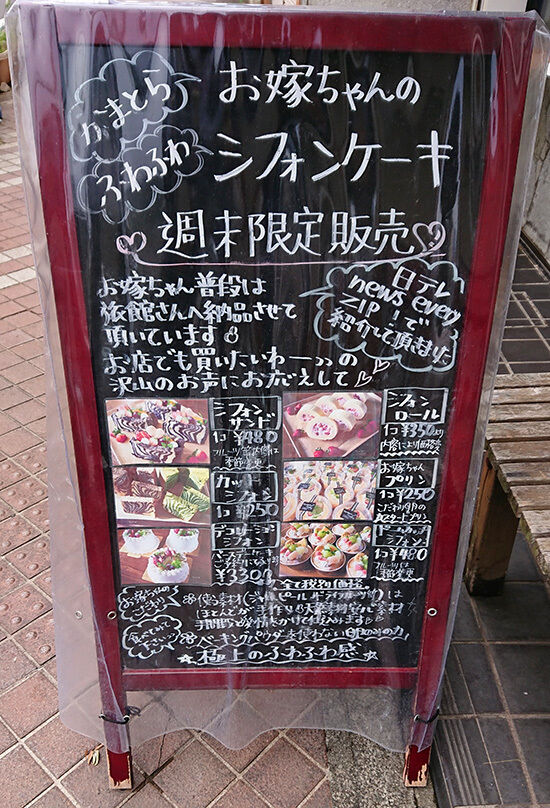 かまとら
ふわふわ
お嫁ちゃんの
シフォンケーキ
週末限定販売
お嫁ちゃん普段は
旅館さんへ納品させて
頂いています
お店でも買いたいわー〜の
沢山のお声にお応えして
日テレ
news every
ZIP!で
紹介して頂きました
シフォン
サンド
1コ ¥480
シフォン
ロール
1コ ¥350より
内容により価格変更
カットシフォン
1コ ¥250
お嫁ちゃん
プリン
1コ ¥250
こだわり卵の
カスタードプリン
デコレーションシフォン
¥3300
シフォン
1コ ¥480
全て税別価格
お嫁ちゃんの
こだわり
食べてみて
下さい
ベーキングパウダーを使わない卵の力
極上のふわふわ感